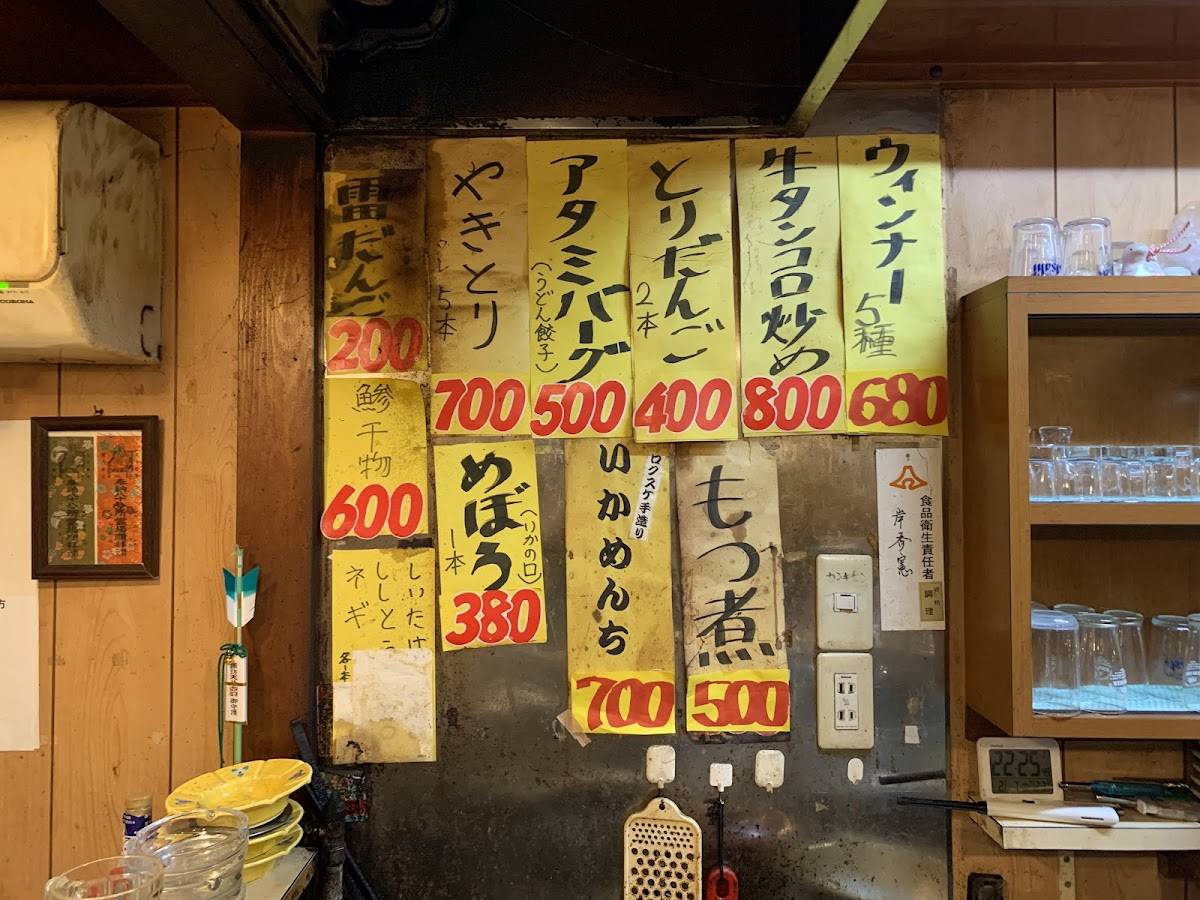 ウィンナー
5種
680
牛タンコロ炒め
800
とりだんご
2本
400
アタミバーグ
(うどん餃子)
500
やきとり
5本
700
雷だんご
200
鯵干物
600
めぼう
(いかの口)
1本
380
いかめんち
ロクスケ手造り
700
もつ煮
500
しいたけ
ししとう
ネギ
各1本
食品衛生責任者
調理
カンキ
CORONA
22:25